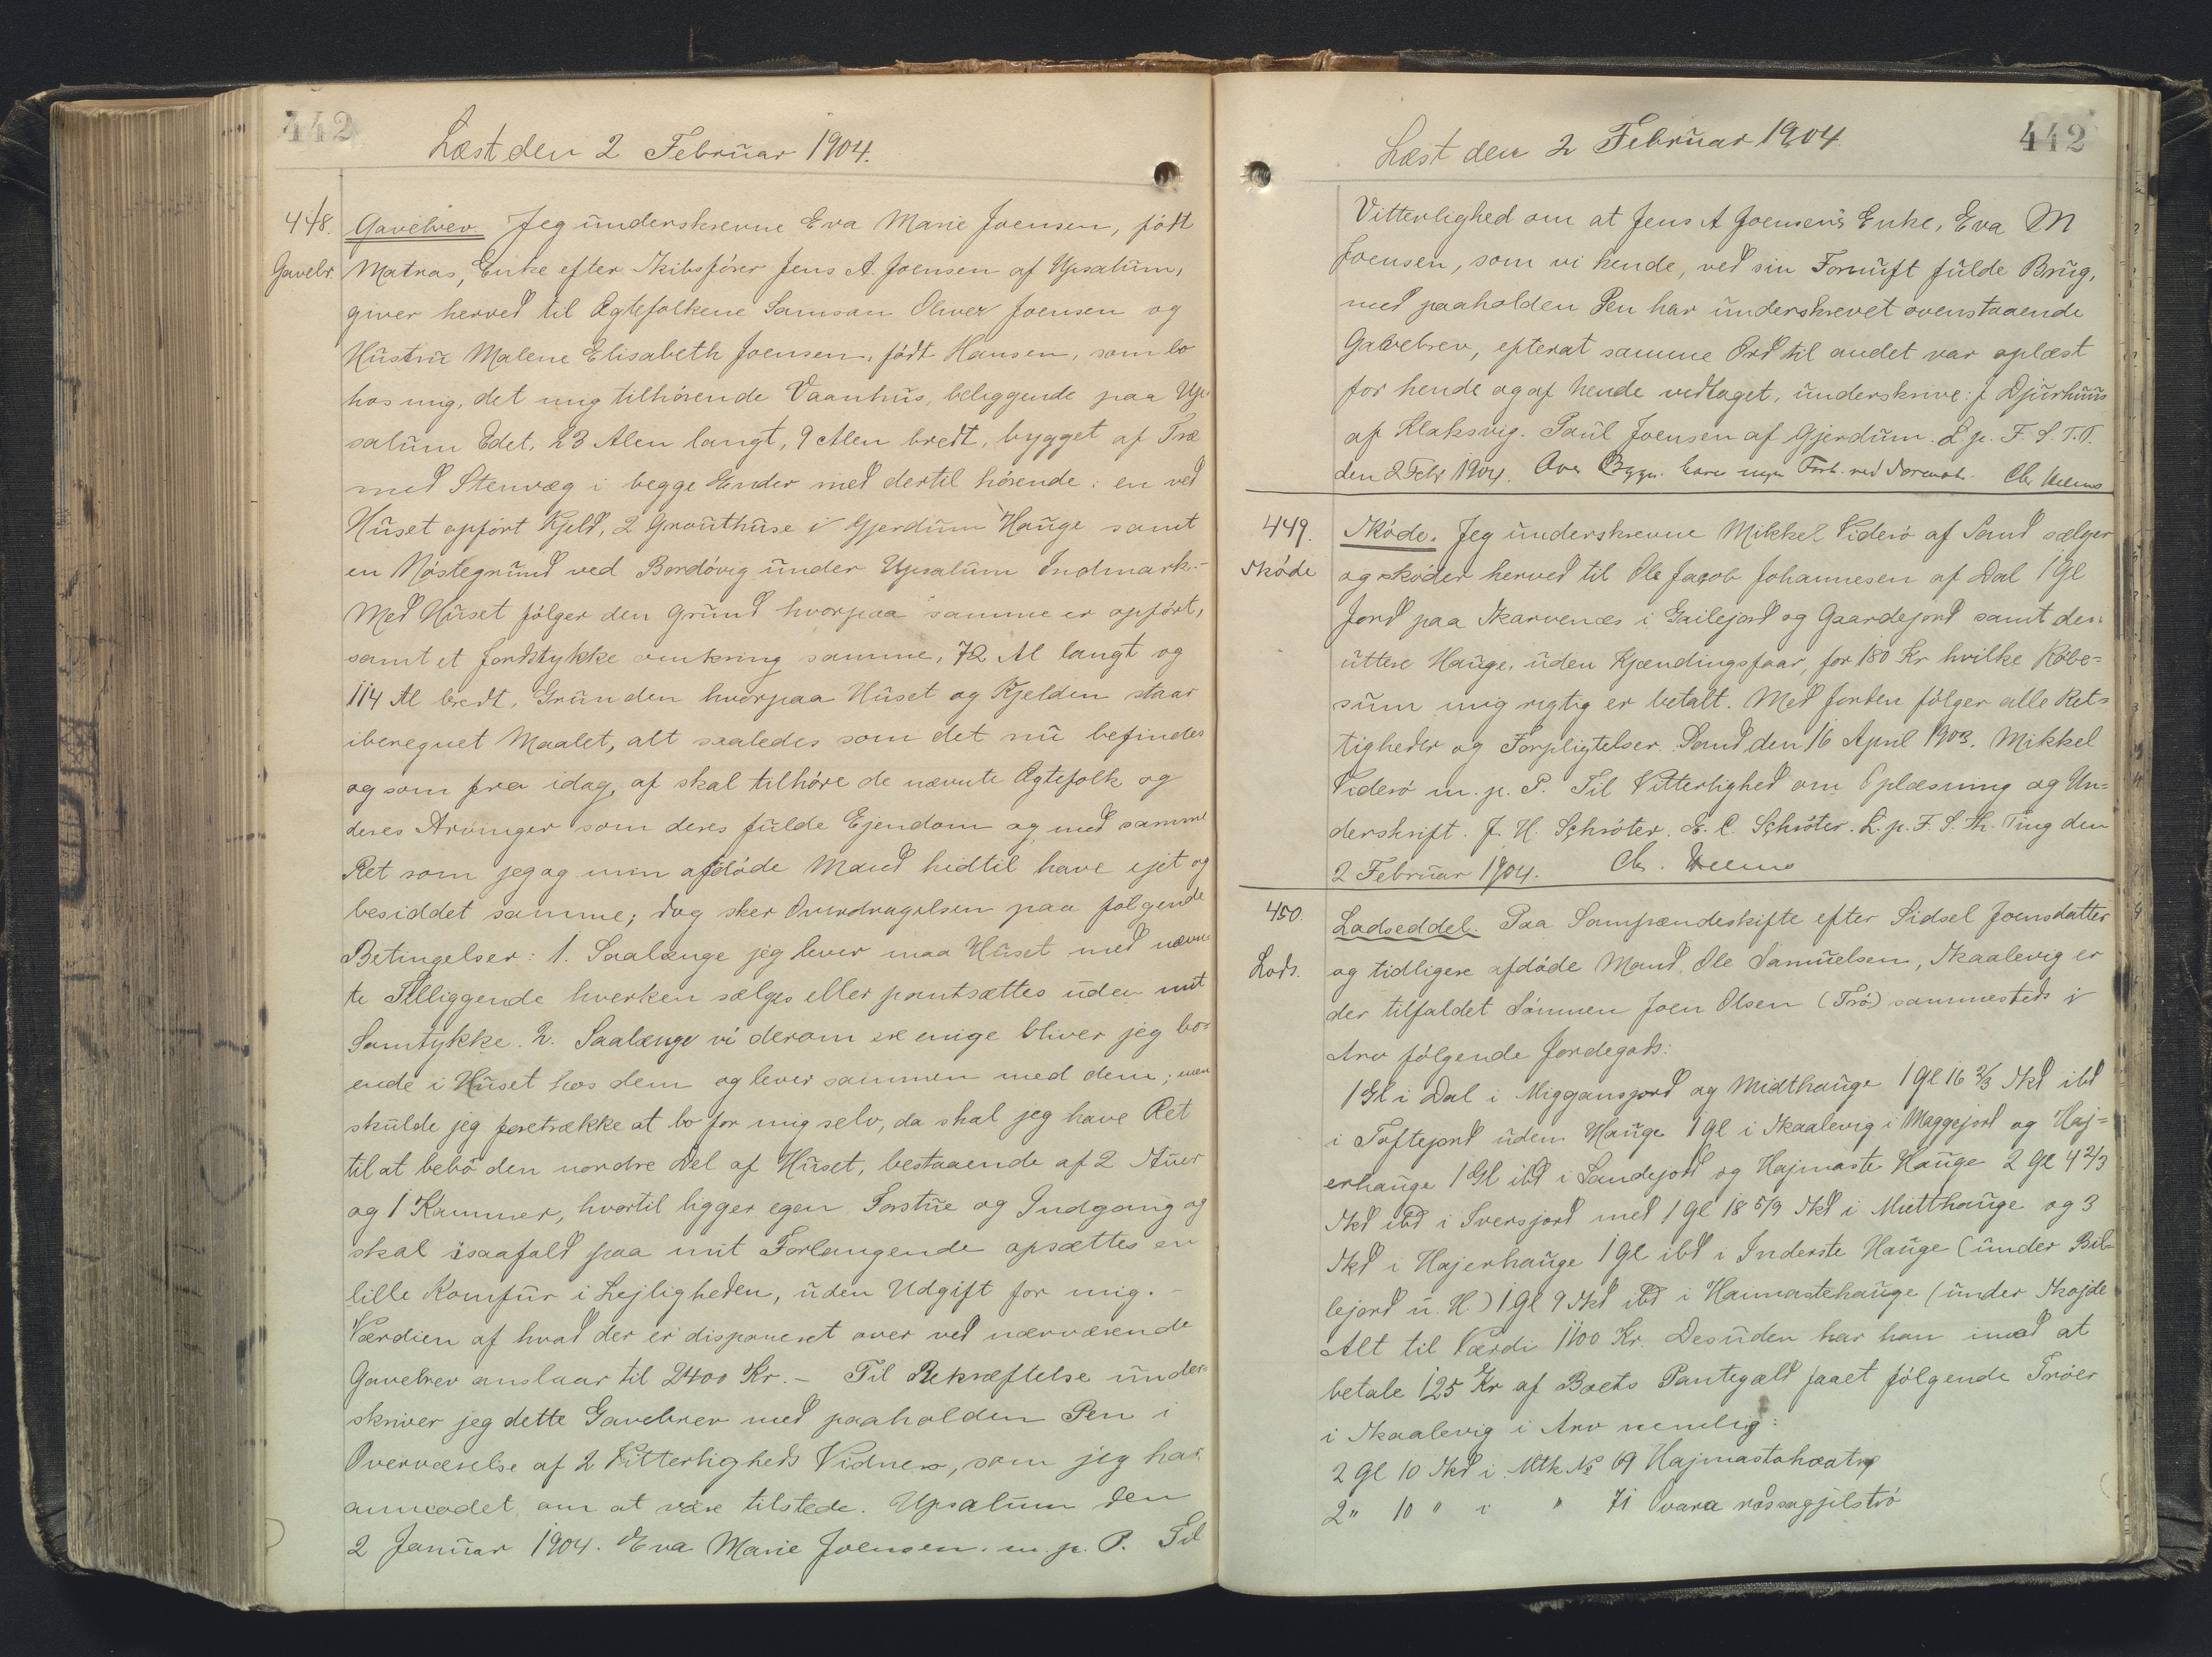 442
Læst den 2 Februar 1904.
448.
Gavebr.
Gavebrev Jeg underskrevne Eva Marie Joensen, født
Matras, Enke efter Skibsfører Jens A. Joensen af Upsalum,
giver herved til Ægtefolkene Samson Oliver Joensen og
Hustru Malene Elisabeth Joensen, født Hansen, som bo
hos mig, det mig tilhörende Vaanhus, beliggende paa Up-
salum Edet, 23 Alen langt, 9 Alen bredt, bygget af Træ
med Stenvæg i begge Ender med dertil hörende: en ved
Huset opført Kjeld, 2 Grouthuse i Gjerdum Hauge samt
en Nöstegrund ved Bordövig under Upsalum Indmark.-
Med Huset fölger den Grund hvorpaa samme er opfört,
samt et Jordstykke omkring samme, 72 Al langt og
114 Al bredt, Grunden hvorpaa Huset og Kjelden staar
iberegnet Maalet, alt saaledes som det nu befindes
og som fra idag af skal tilhöre de nævnte Ægtefolk og
deres Arvinger som deres fulde Ejendom og med samme
Ret som jeg og min afdöde Mand hidtil have ejet og
besiddet samme; dog sker Overdragelsen paa fölgende
Betingelser: 1. Saalænge jeg lever maa Huset med nævn-
te Tilliggende hverken sælges eller pantsættes uden mit
Samtykke. 2. Saalænge vi derom ere enige bliver jeg bo-
ende i Huset hos dem og lever sammen med dem; men
skulde jeg foretrække at bo for mig selv, da skal jeg have Ret
til at bebo den nordre Del af Huset, bestaaende af 2 Stuer
og 1 Kammer, hvortil ligger egen Forstue og Indgang og
skal isaafald paa mit Forlangende opsættes en
lille Komfur i Lejligheden, uden Udgift for mig.-
Værdien af hvad der er disponeret over ved nærværende
Gavebrev anslaar til 2400 Kr.- Til Bekræftelse under-
skriver jeg dette Gavebrev med paaholden Pen i
Overværelse af 2 Vitterligheds Vidner, som jeg har
anmodet om at være tilstede. Upsalum den
2 Januar 1904. Eva Marie Joensen. m. p. P. Til
442
Læst den 2 Februar 1904
Vitterlighed om at Jens A Joensen's Enke, Eva M
Joensen, som vi kende, ved sin Fornuft fulde Brug,
med paaholden Pen har underskrevet ovenstaaende
Gavebrev, efterat samme Ord til andet var oplæst
for hende og af hende vedtaget, underskrive: J Djurhuus
af Klaksvig. Paul Joensen af Gjerdum. L. p. F. S. T. T.
den 2 Febr 1904.
449.
Skøde
Skøde. Jeg underskrevne Mikkel Viderö af Sand sælger
og skøder herved til Ole Jacob Johannesen af Dal 1 Gl
Jord paa Skarvenæs i Gailejord og Gaardejord samt den
uttere Hauge, uden Kjændingsfaar, for 180 Kr hvilke Købe=
sum mig rigtig er betalt. Med Jorden fölger alle Ret=
tigheder og Forpligtelser. Sand den 16 April 1903. Mikkel
Viderö m. p. P. Til Vitterlighed om Oplæsning og Un=
derskrift. J. H. Schröter. E. C. Schröter. L. p. F. S. Th. Ting den
2 Februar 1904.
450.
Lods.
Lodseddel. Paa Samfrændeskifte efter Sidsel Joensdatter
og tidligere afdöde Mand, Ole Samuelsen, Skaalevig er
der tilfaldet Sönnen Joen Olsen (Trö) sammesteds i
Arv fölgende Jordegods:
1 Gl i Dal i Miggansjord og Midthauge 1 Gl 16 2/3 Skd ibd
i Toftejord uden Hauge 1 Gl i Skaalevig i Maggejord og Haj=
erhauge 1 Gl ibd i Sandejord og Hajmaste Hauge 2 Gl 4 2/3
Skd ibd i Sversjord med 1 Gl 18 5/9 Skd i Mitthauge og 3
Skd i Hajerhauge 1 Gl ibd i Inderste Hauge (under Bil-
lejord u. H.) 1 Gl 9 Skd ibd i Haimastehauge (under Skojde
Alt til Værdi 1100 Kr. Desuden har han imod at
betale 125 Kr af Boets Pantegæld faaet fölgende Tröer
i Skaalevig i Arv nemlig:
2 Gl 10 Skd i Mtk № 69
2 " 10 " i " 71